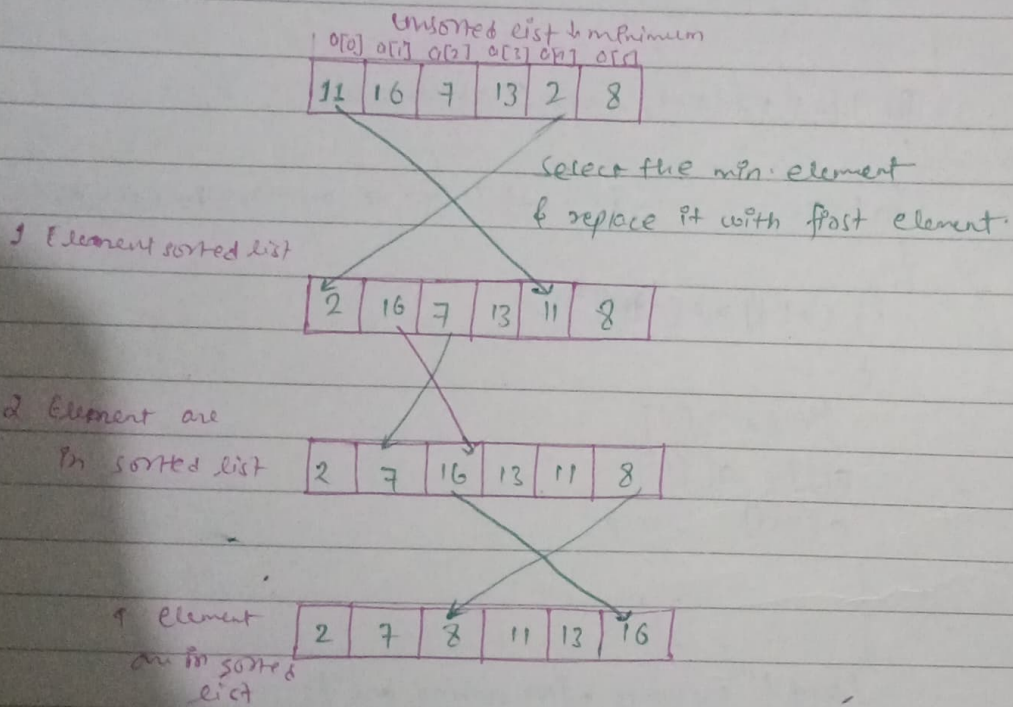 Unsorted list & minimum
a[0] a[1] a[2] a[3] a[4] a[5]
11 16 7 13 2 8
Select the min. element
& replace it with first element.
1 Element sorted list
2 16 7 13 11 8
2 Element are
in sorted list
2 7 16 13 11 8
element
are in sorted
list
2 7 8 11 13 16